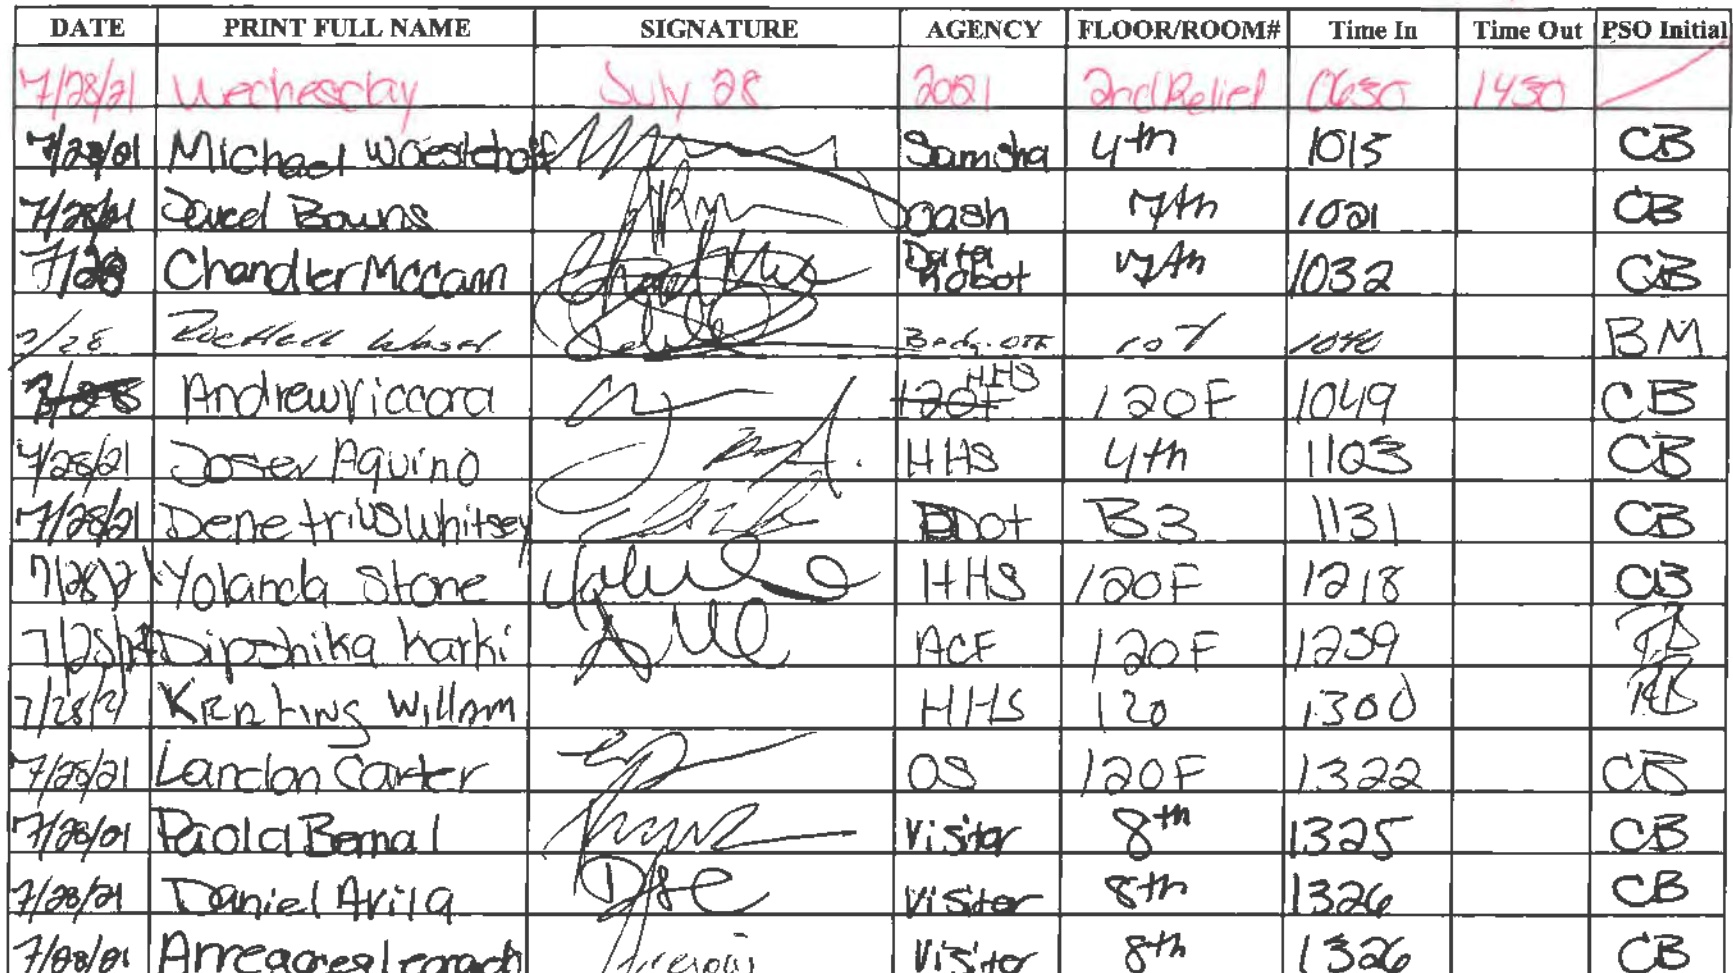 DATE PRINT FULL NAME SIGNATURE AGENCY FLOOR/ROOM# Time In Time Out PSO Initial
7/28/21 Wednesday July 28 2021 2nd Relief 0630 1430
7/28/21 Michael Samsha 4th 1015 CB
7/28/21 Jared Bowns Oash 7th 1021 CB
7/28 Chandler Mccann Data Robot 7th 1032 CB
7/28 1040 BM
7/28 Andrew Viccora 120F HHS 120F 1049 CB
7/28/21 Joser Aquino HHS 4th 1103 CB
7/28/21 Denetrius Whitsey DDot B3 1131 CB
7/28/21 Yolanda Stone HHS 120F 1218 CB
7/28/21 Dipshika Karki ACF 120F 1239
7/28/21 Keating William HHS 120 1300
7/28/21 Landon Carter OS 120F 1322 CB
7/28/21 Paola Bernal Visitor 8th 1325 CB
7/28/21 Daniel Avila Visitor 8th 1326 CB
7/28/21 Visitor 8th 1326 CB